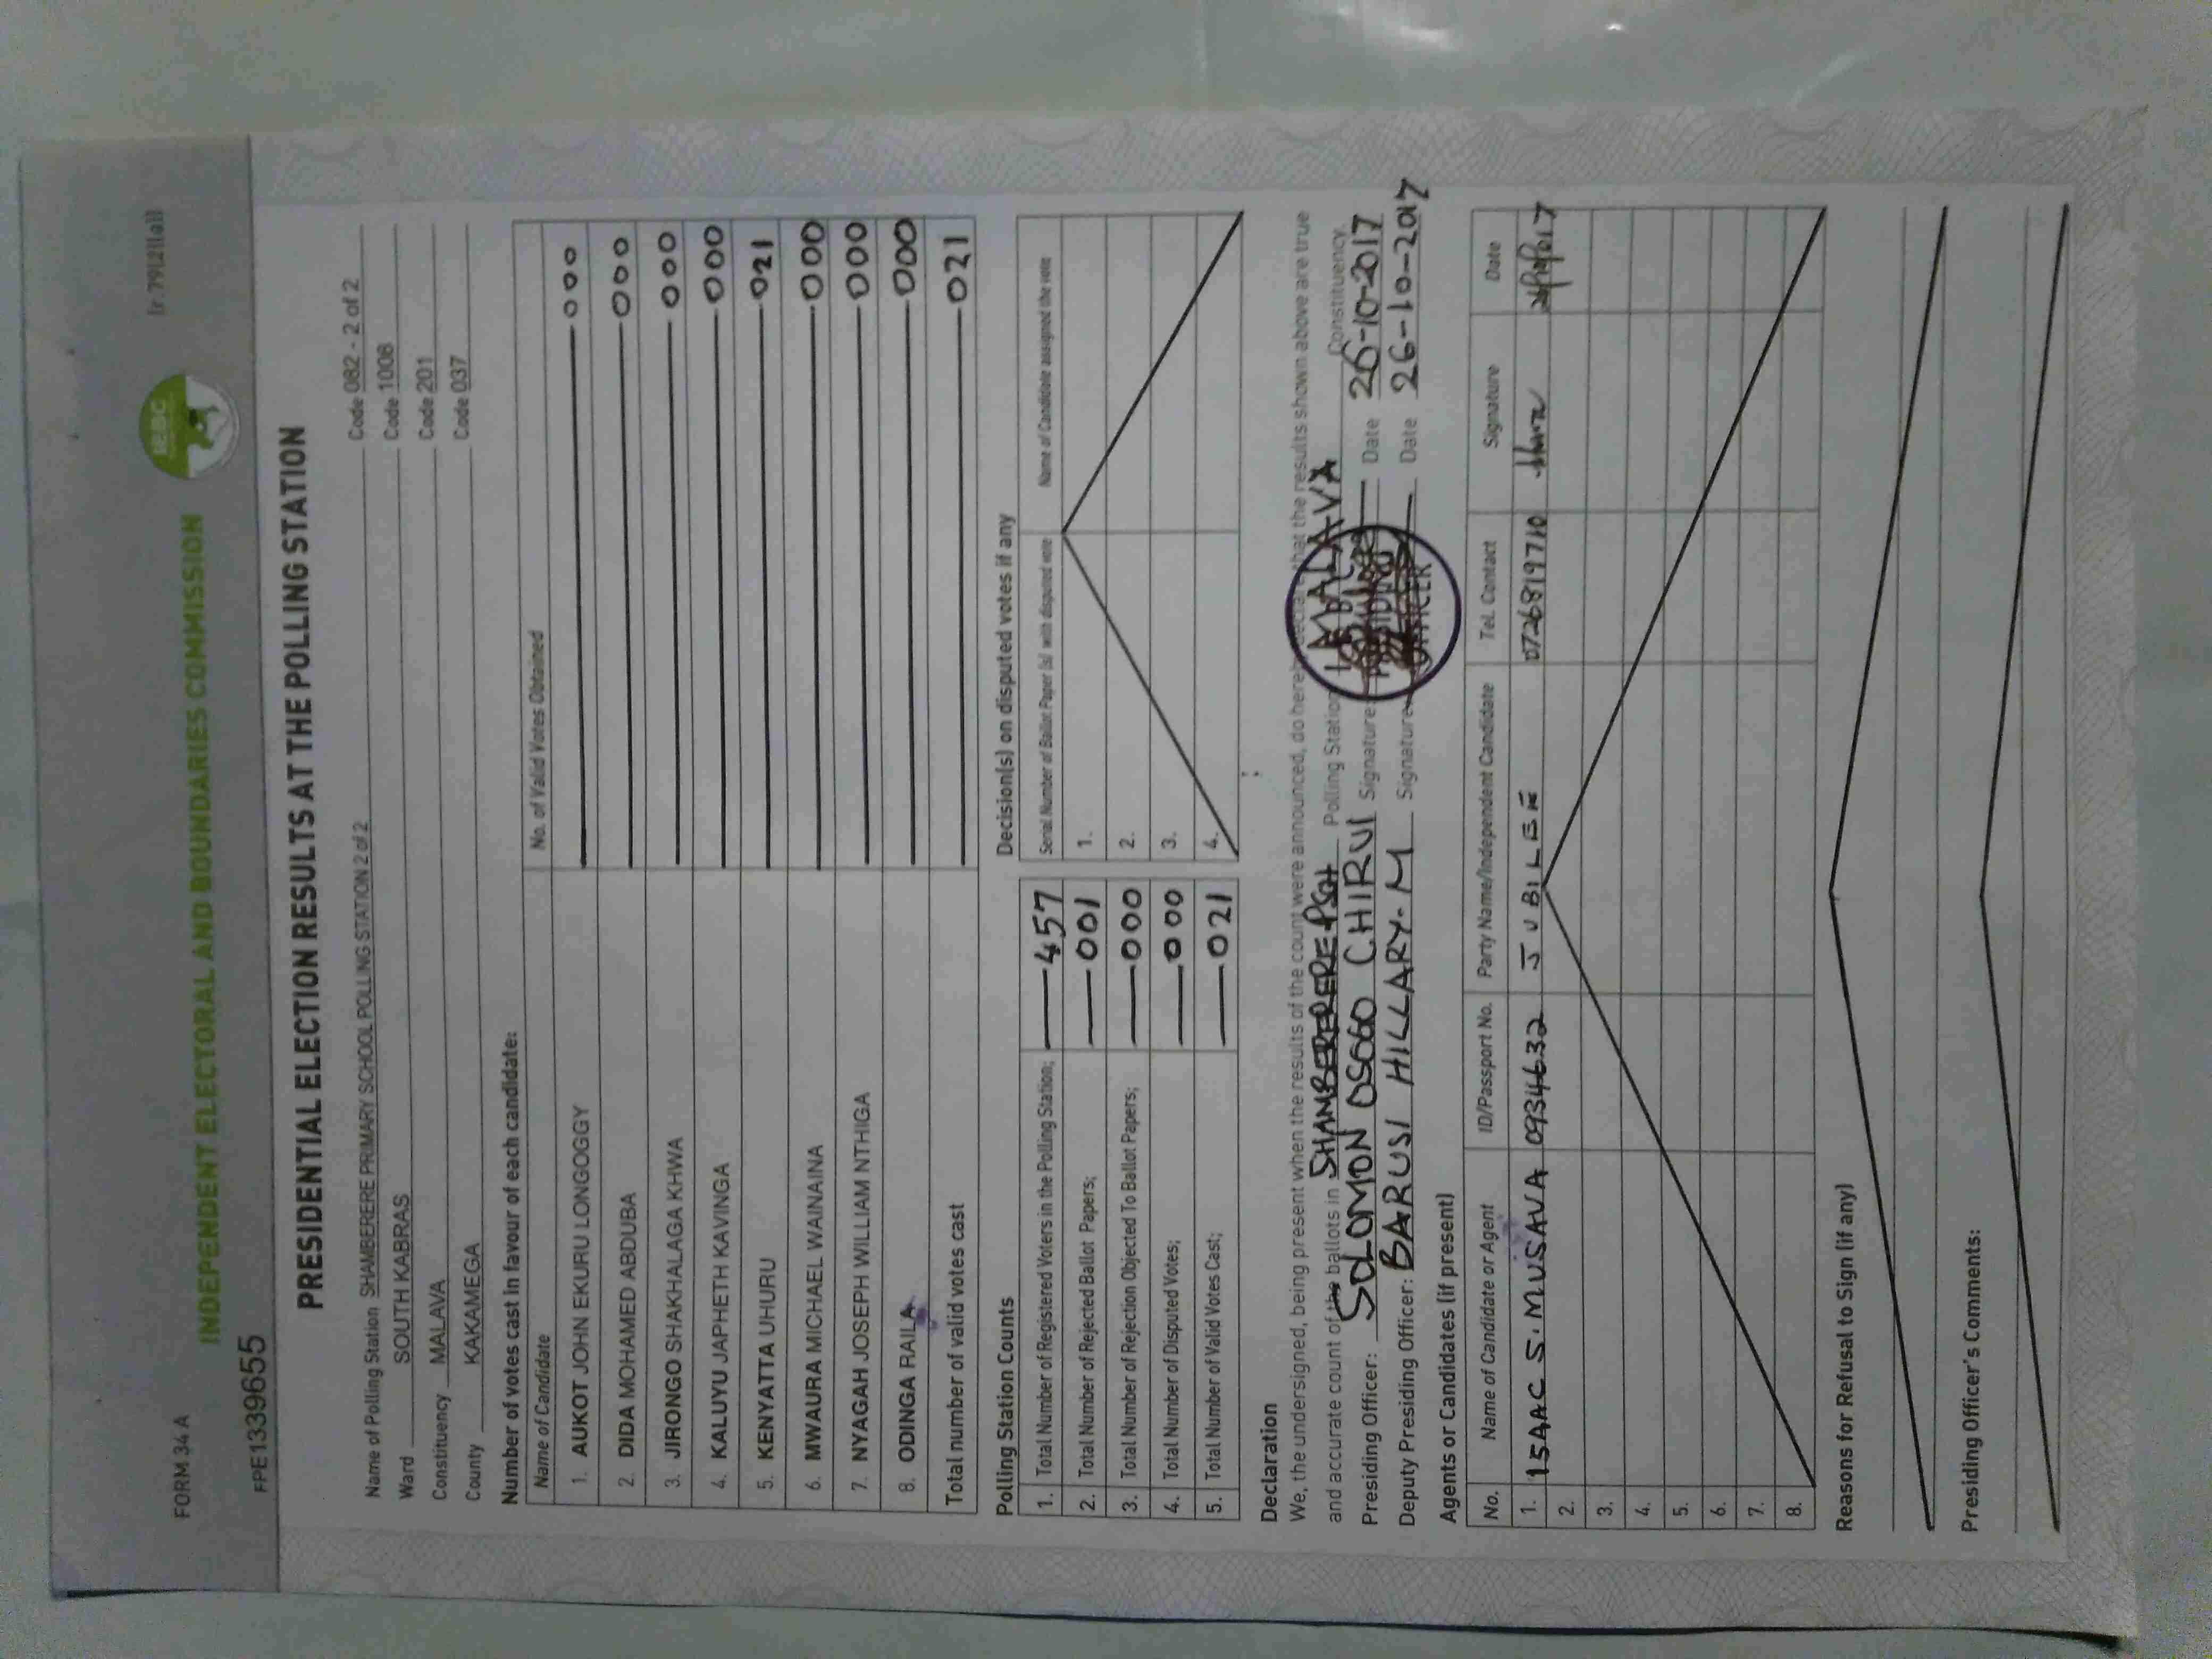 FORM 34 A
(r 79(2)(a))
INDEPENDENT ELECTORAL AND BOUNDARIES COMMISSION
IEBC
FPE1339655
PRESIDENTIAL ELECTION RESULTS AT THE POLLING STATION
Name of Polling Station SHAMBERERE PRIMARY SCHOOL POLLING STATION 2 of 2 Code 082 - 2 of 2
Ward SOUTH KABRAS Code 1008
Constituency MALAVA Code 201
County KAKAMEGA Code 037
Number of votes cast in favour of each candidate:
Name of Candidate No. of Valid Votes Obtained
1. AUKOT JOHN EKURU LONGOGGY 000
2. DIDA MOHAMED ABDUBA 000
3. JIRONGO SHAKHALAGA KHWA 000
4. KALUYU JAPHETH KAVINGA 000
5. KENYATTA UHURU 021
6. MWAURA MICHAEL WAINAINA 000
7. NYAGAH JOSEPH WILLIAM NTHIGA 000
8. ODINGA RAILA 000
Total number of valid votes cast 021
Polling Station Counts
1. Total Number of Registered Voters in the Polling Station; 457
2. Total Number of Rejected Ballot Papers; 001
3. Total Number of Rejection Objected To Ballot Papers; 000
4. Total Number of Disputed Votes; 000
5. Total Number of Valid Votes Cast; 021
Decision(s) on disputed votes if any
Serial Number of Ballot Paper (s) with disputed vote Name of Candidate assigned the vote
1.
2.
3.
4.
Declaration
We, the undersigned, being present when the results of the count were announced, do hereby that the results shown above are true
and accurate count of the ballots in SHAMBERERE PSCH Polling Station MALAVA Constituency.
Presiding Officer: SOLOMON OSGGO CHIRUI Signature: Date 26-10-2017
Deputy Presiding Officer: BARUSI HILLARY. M Signature: Date 26-10-2017
PRESIDING
OFFICER
Agents or Candidates (if present)
No. Name of Candidate or Agent ID/Passport No. Party Name/Independent Candidate Tel. Contact Signature Date
1. ISAAC S. MUSAVA 09344632 JUBILEE 0726819710
2.
3.
4.
5.
6.
7.
8.
Reasons for Refusal to Sign (if any)
Presiding Officer's Comments: